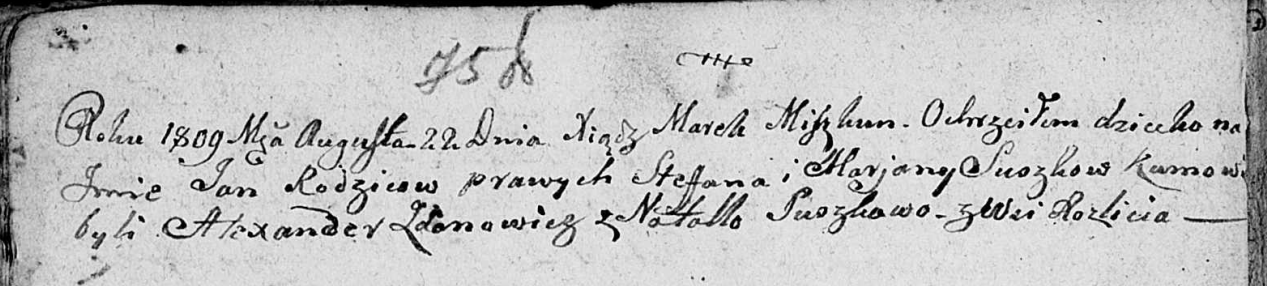 75
Roku 1809 Mca Augusta 22 Dnia Xiądz Marek Miszkun. Ochrzciłem dziecko na
Jmie Jan Rodzicow prawych Steffana i Marjany Suszkow Kumowi
byli Alexander Zdanowicz z Natallo Suszkowo z Wsi Rozlicia